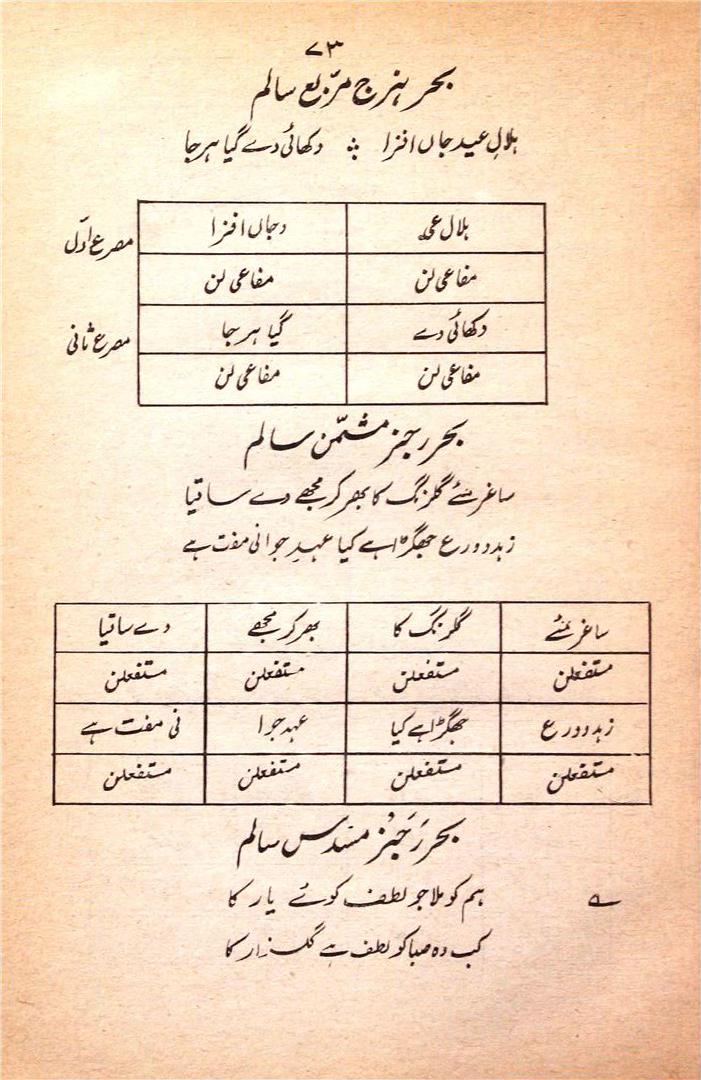 ۷۳
بحر ہزج مربّع سالم
ہلالِ عید جاں افزا ؞ دکھائی دے گیا ہر جا
ہلال عی د جاں افزا
مصرع اوّل
مفاعی لن مفاعی لن
دکھائی دے گیا ہر جا
مصرع ثانی
مفاعی لن مفاعی لن
بحر رجز مثمّن سالم
ساغر مئے گلرنگ کا بھر کر مجھے دے ساقیا
زہد و ورع جھگڑا ہے کیا عہدِ جوانی مفت ہے
ساغر مئے گلرنگ کا بھر کر مجھے دے ساقیا
مستفعلن مستفعلن مستفعلن مستفعلن
زہد و ورع جھگڑا ہے کیا عہد جوا نی مفت ہے
مستفعلن مستفعلن مستفعلن مستفعلن
بحر رَجَز مسدس سالم
ہم کو ملا جو لطف کوئے یار کا
کب وہ صبا کو لطف ہے گلزار کا